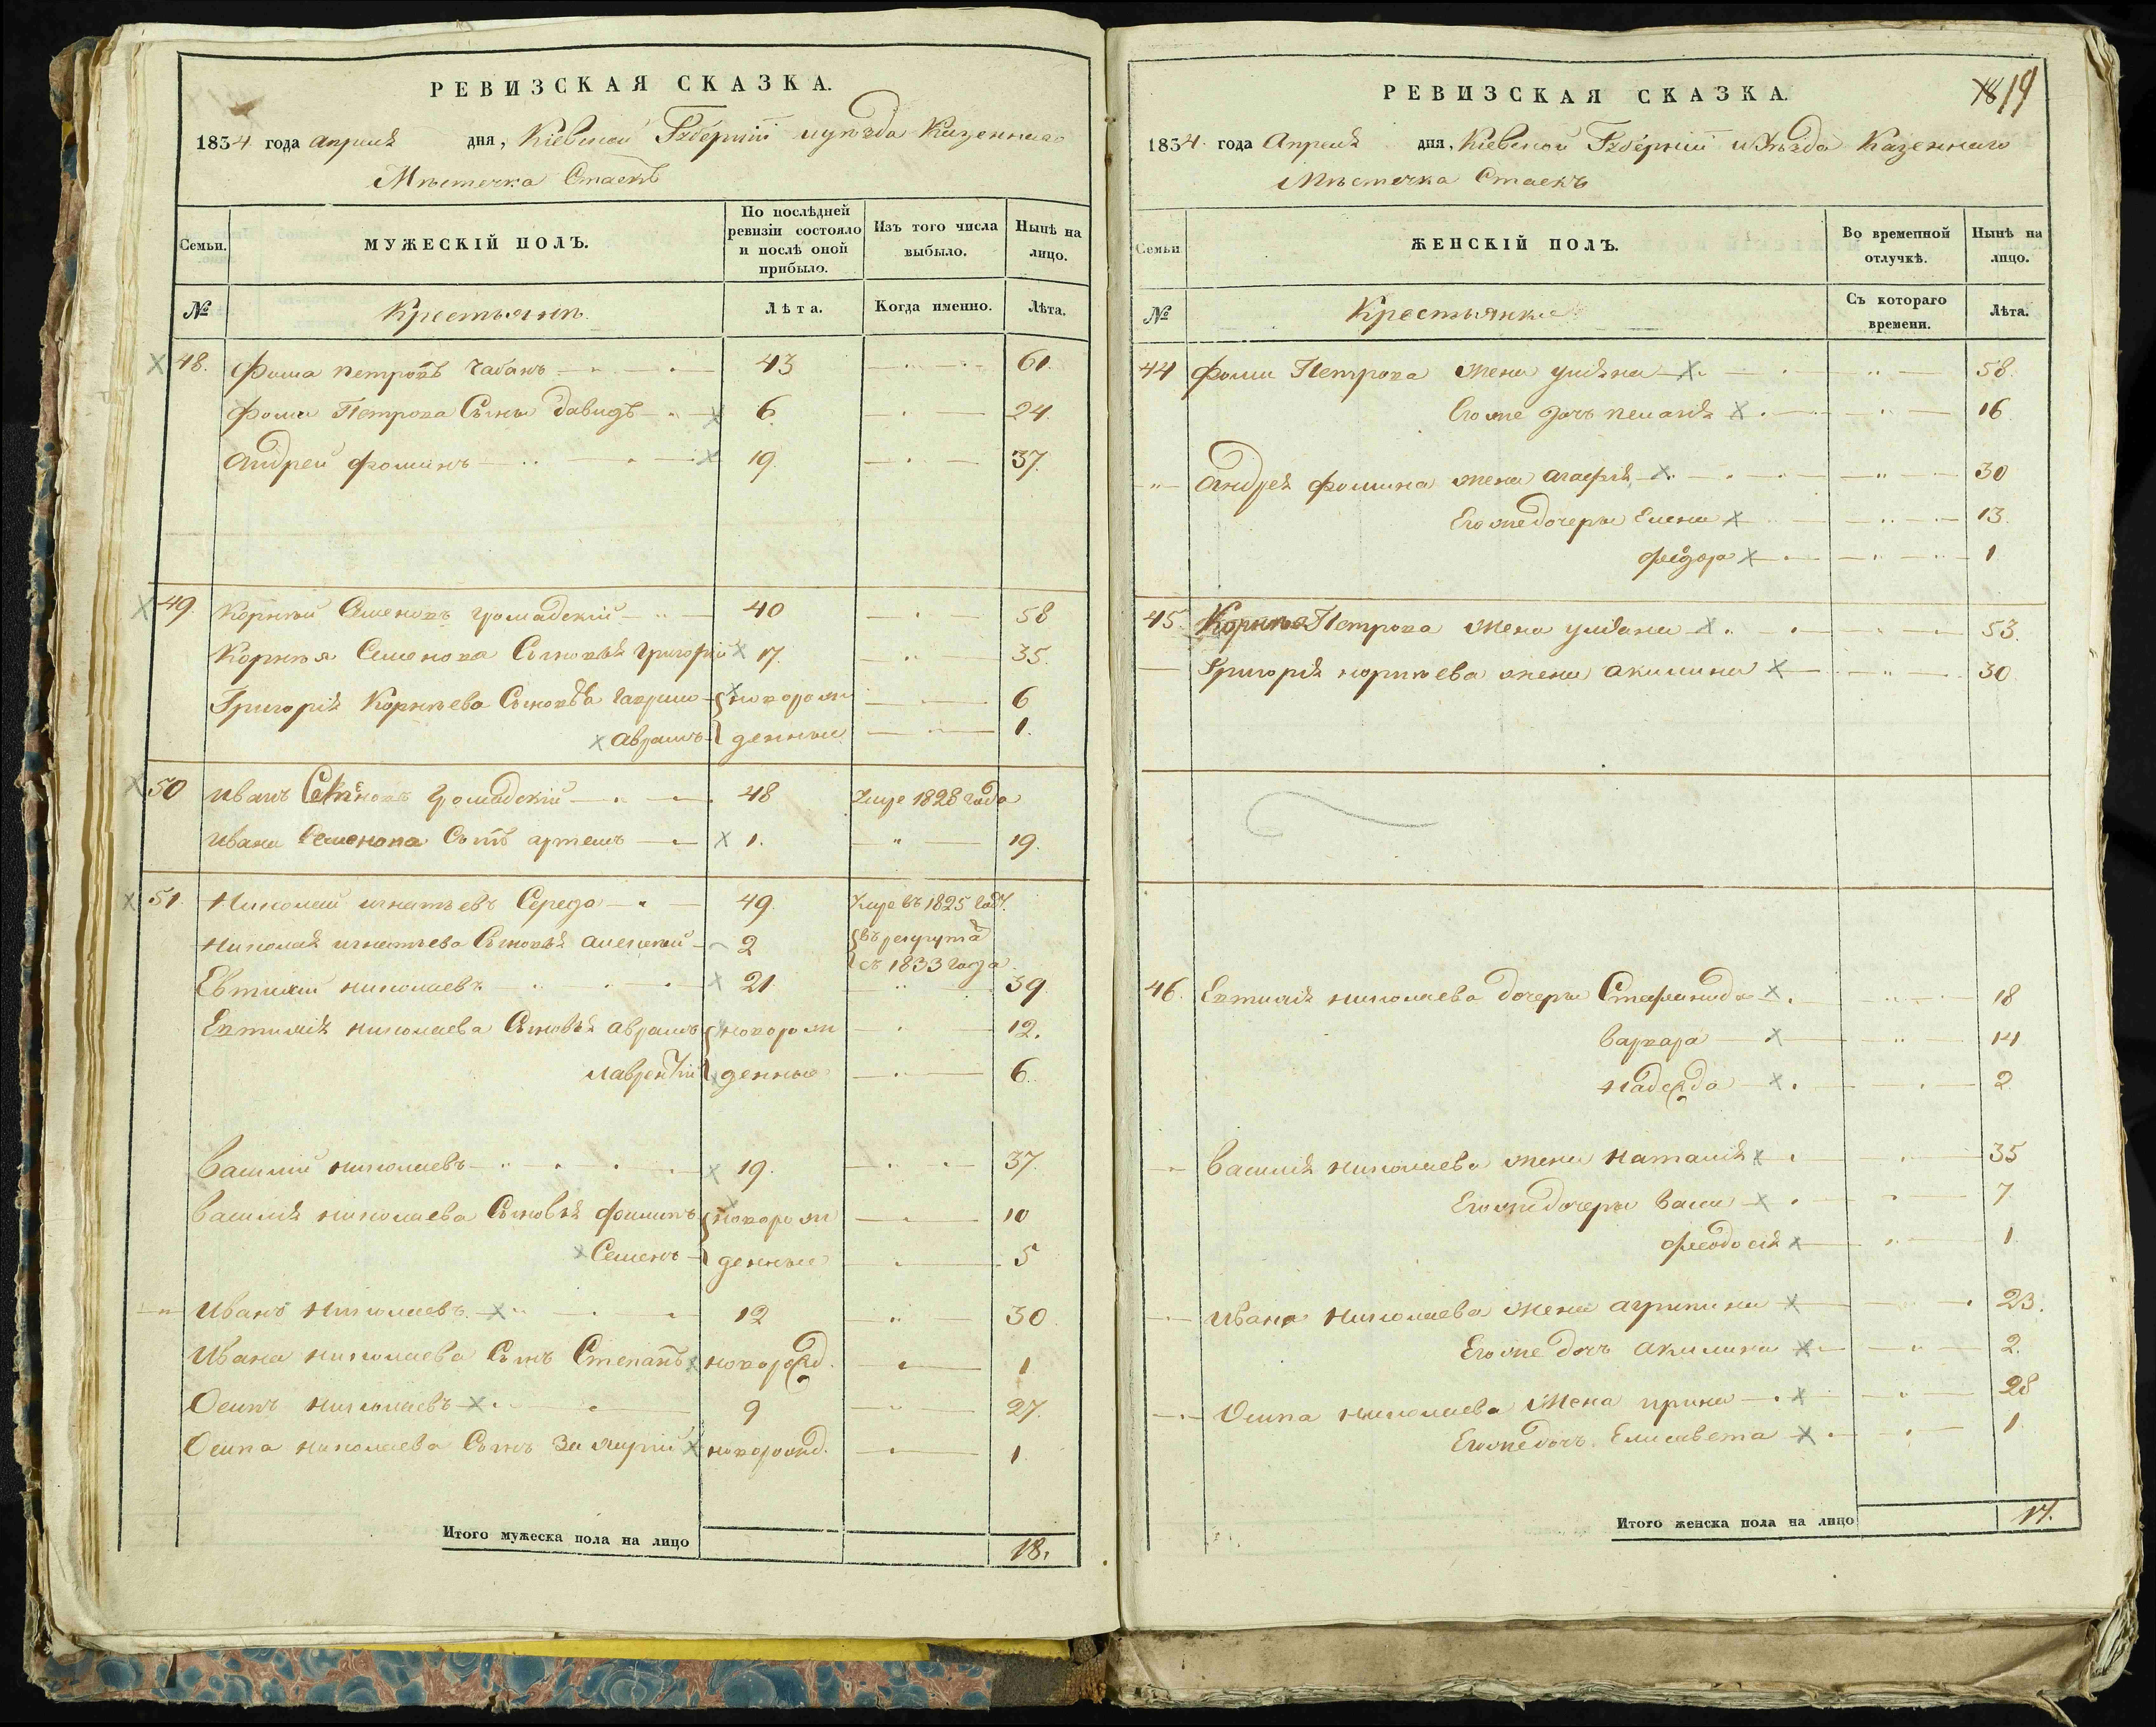 РЕВИЗСКАЯ СКАЗКА.
1834 года апреля дня, Кіевской Губерніи и уезда Казеннаго
Мѣстечка Стаекъ
Семьи.
МУЖЕСКІЙ ПОЛЪ.
По послѣдней ревизіи состояло и послѣ оной прибыло.
Изъ того числа выбыло.
Нынѣ на лицо.
№
Крестьянъ
Лѣта.
Когда именно.
Лѣта.
48. Фома петровъ Чабанъ 43 61.
Фомы Петрова Сынъ давидъ 6. 24.
Андрей фоминъ 19. 37.
49. Корнѣй Семеновъ громадскій 40 58
Корнѣя Семенова Сыновья Григорій 17. 35.
Григорія Корнѣева Сыновья гаврило новорож 6
аврамъ денные 1.
50 иванъ Семеновъ громадскій 48 Умре 1828 года
ивана Семенова Сынъ артемъ 1. 19.
51. Николай игнатьевъ Середа 49. Умре въ 1825 году.
Николая игнатьева Сыновья алексѣй 2 въ рекрута
съ 1833 года
Евтихій николаевъ 21. 39.
Евтихія николаева Сыновья аврамъ новорож 12.
лаврентій денные 6.
Василій николаевъ 19. 37.
Василія николаева Сыновья филипъ новорож 10
Семенъ денные 5
Иванъ николаевъ 12 30.
Ивана николаева Сынъ Степанъ новорожд. 1
Осипъ николаевъ 9 27.
Осипа николаева Сынъ Захарій новорожд. 1
Итого мужеска пола на лицо 18.
18 19
РЕВИЗСКАЯ СКАЗКА.
1834 года Апреля дня, Кіевской Губерніи и Уѣзда Казеннаго
Мѣстечка Стаекъ
Семьи
ЖЕНСКІЙ ПОЛЪ.
Во временной отлучкѣ.
Нынѣ на лицо.
№
Крестьянки
Съ котораго времени.
Лѣта.
44 Фомы Петрова жена ульяна 58.
Его же дочь пелагія 16.
Андрея фомина жена агафія 30
Его же дочери Елена 13.
федора 1
45. Корнѣя Петрова жена ульяна 53.
Григорія корнѣева жена акилина 30
46. Евтихія николаева дочери Стефанида 18
варвара 14
надежда 2
Василія николаева жена наталія 35
Его же дочери васа 7
феодосія 1
Ивана николаева жена агрипина 23.
Его же дочь акилина 2.
Осипа николаева жена ирина 28
Его же дочь Елисавета 1.
Итого женска пола на лицо 17.